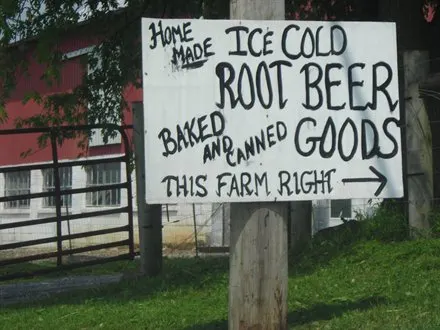 HOME MADE ICE COLD
ROOT BEER
BAKED AND CANNED GOODS
THIS FARM RIGHT →